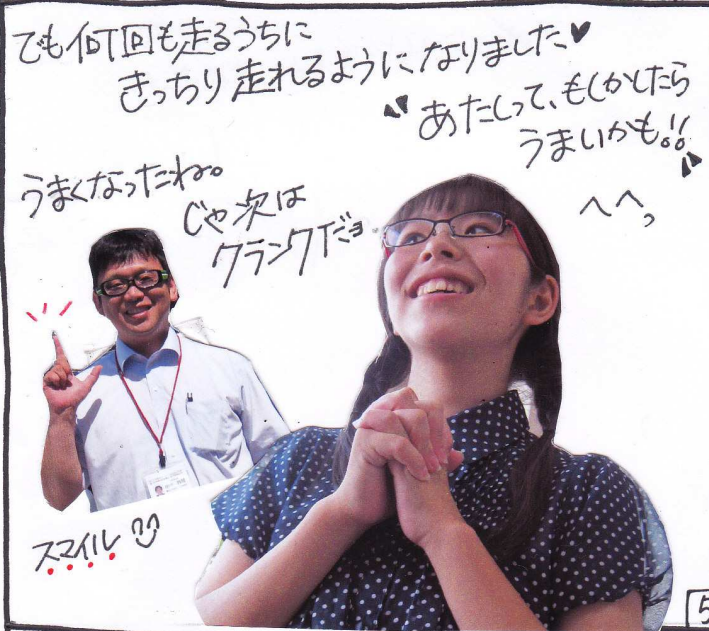 でも何回も走るうちに
きっちり走れるようになりました♥
あたしって、もしかしたら
うまいかも!!
へへっ
うまくなったね。
じゃ次は
クランクだョ
スマイル
5